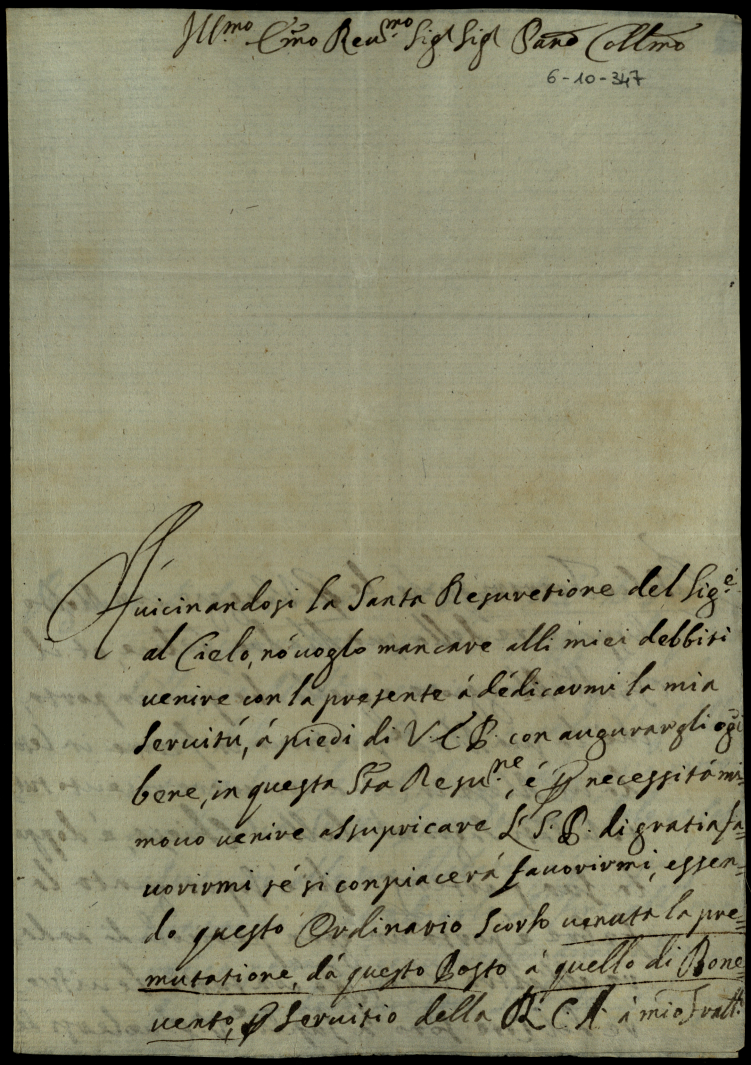 Ill.mo Emo Reu.mo Sig.r Sig.r Pãne Collmo
6-10-347
Auicinandosi la Santa Resuretione del Sig.e
al Cielo, nó uoglo mancare alli miei debbiti
uenire con la presente á dédicarmi la mia
Seruitú, á piedi di V. E. R. con augurargli ogi
bene, in questa Sta Resu.ne, é p necessitá mi
mouo uenire assupricare L'S. R. di gratia fa=
uorirmi sé si conpiacerá fauorirmi, essen=
do questo Ordinario Scorso uenuta la pre=
mutatione, dá questo Posto á quello di Bone
uento, p Seruitio della R. C. A. á mio fratt.